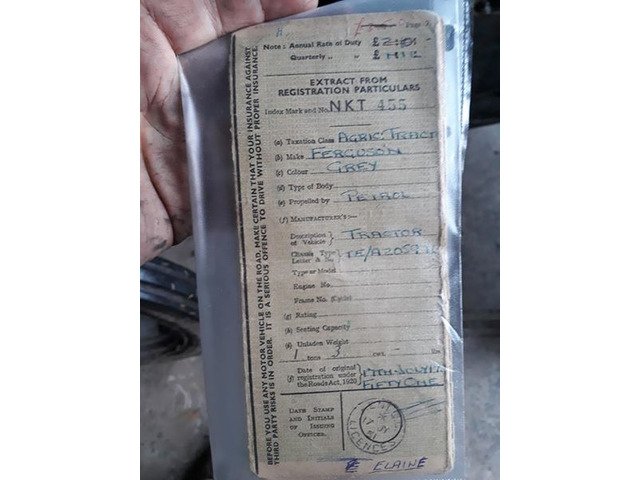 Page 2
Note : Annual Rate of Duty £
Quarterly „ „ £ NIL
EXTRACT FROM
REGISTRATION PARTICULARS
Index Mark and No. NKT 455
(a) Taxation Class AGRIC. TRACT
(b) Make FERGUSON
(c) Colour GREY
(d) Type of Body
(e) Propelled by PETROL
(f) MANUFACTURER'S:—
Description of Vehicle } TRACTOR
Chassis Type Letter &
Type or Model
Engine No.
Frame No. (Cycle)
(g) Rating
(h) Seating Capacity
(i) Unladen Weight
1 tons 3 cwt. — lbs
Date of original
(j) registration under
the Roads Act, 1920
FIFTY ONE
DATE STAMP
AND INITIALS
OF ISSUING
OFFICER.
LICENCES
ELAINE
BEFORE YOU USE ANY MOTOR VEHICLE ON THE ROAD, MAKE CERTAIN THAT YOUR INSURANCE AGAINST
THIRD PARTY RISKS IS IN ORDER. IT IS A SERIOUS OFFENCE TO DRIVE WITHOUT PROPER INSURANCE.